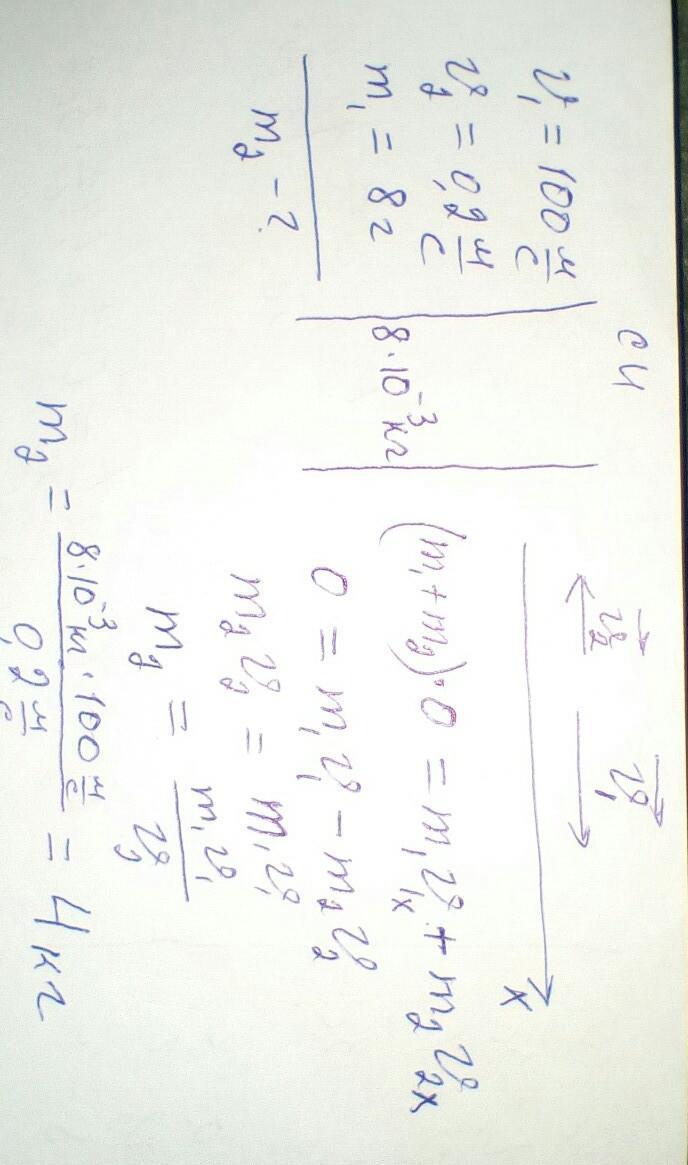 v₁ = 100 м/с
v₂ = 0,2 м/с
m₁ = 8 г
m₂ - ?
СИ
8·10⁻³ кг
v₂ v₁
x
(m₁ + m₂)·0 = m₁v₁ₓ + m₂v₂ₓ
0 = m₁v₁ - m₂v₂
m₂v₂ = m₁v₁
m₂ = m₁v₁/v₂
m₂ = 8·10⁻³ кг · 100 м/с / 0,2 м/с = 4 кг